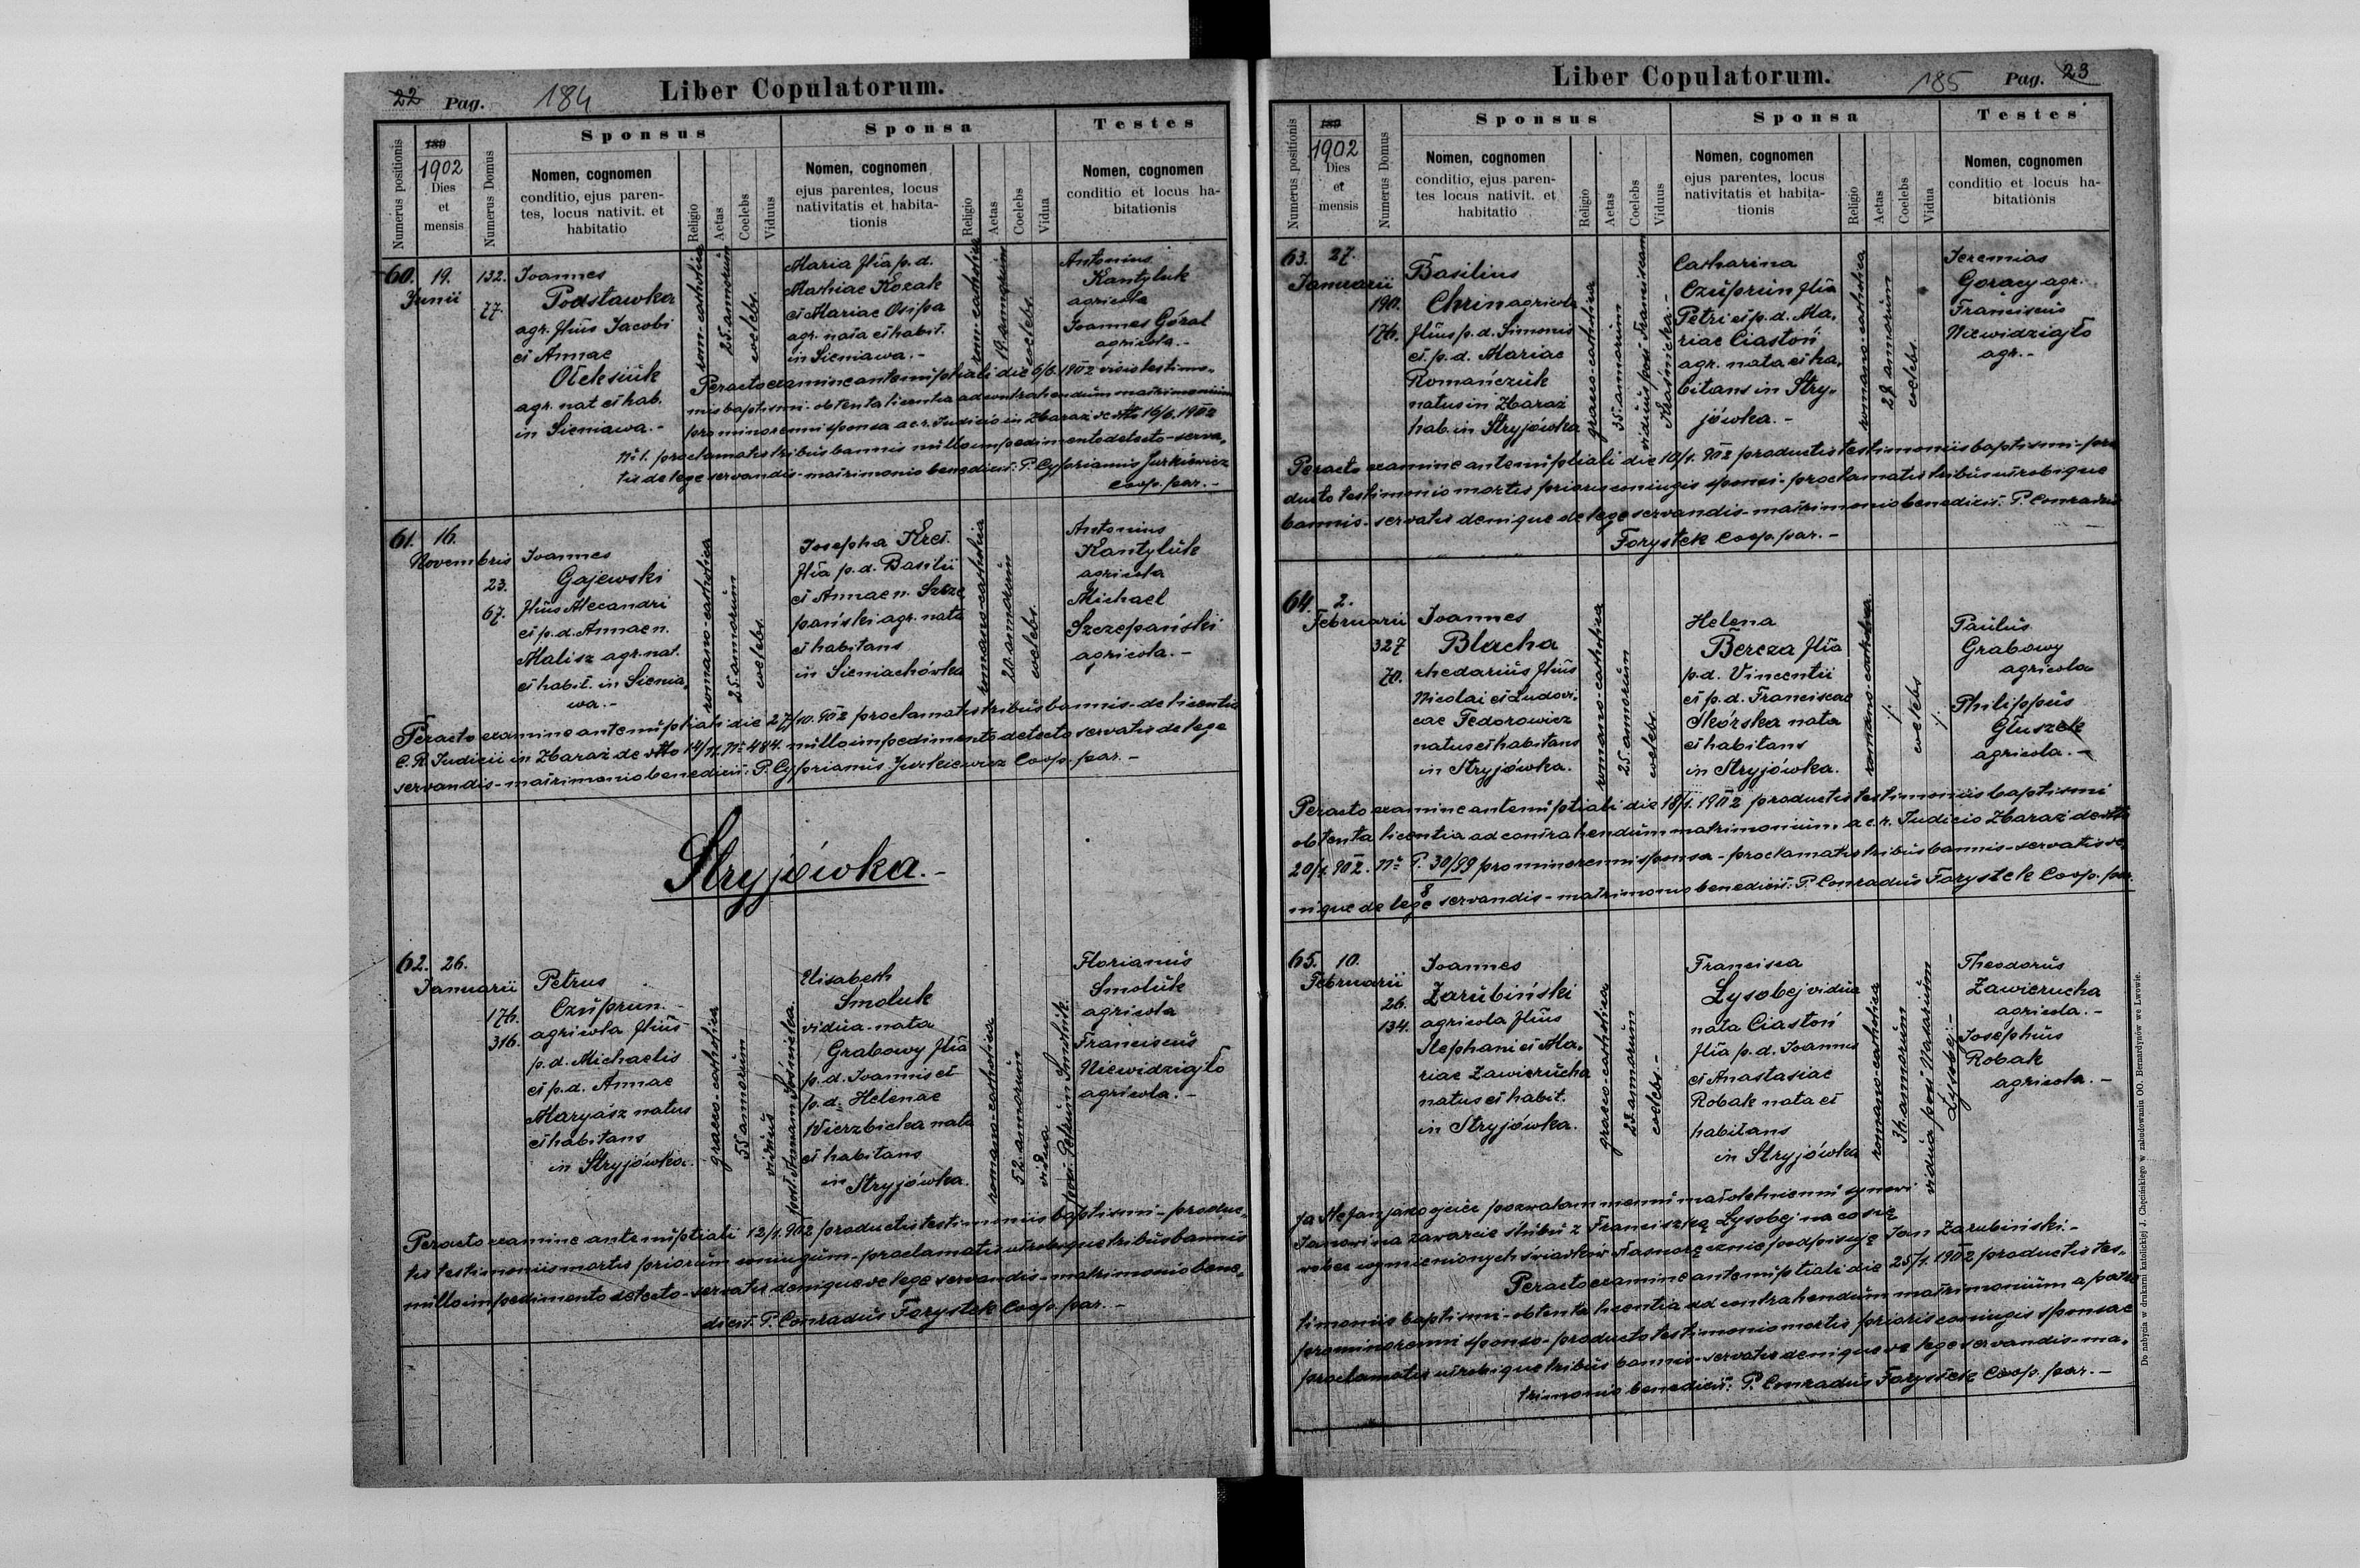 22 Pag. 184 Liber Copulatorum.
Numerus positionis
189
1902
Dies
et
mensis
Numerus Domus
Sponsus
Nomen, cognomen
conditio, ejus paren-
tes, locus nativit. et
habitatio
Religio
Aetas
Coelebs
Viduus
Sponsa
Nomen, cognomen
ejus parentes, locus
nativitatis et habita-
tionis
Religio
Aetas
Coelebs
Vidua
Testes
Nomen, cognomen
conditio et locus ha-
bitationis
60. 19.
Junii
132.
77.
Joannes
Podstawka
agr. filius Jacobi
et Annae
Oleksiuk
agr. nat et hab.
in Sieniawa.-
rom-catholica
25. annorum
coelebs.
Maria filia p. d.
Mathiae Kozak
et Mariae Osipa
agr. nata et habit.
in Sieniawa.-
rom-catholica
19. annorum
coelebs.
Antonius
Kantyluk
agricola
Joannes Góral
agricola.-
Peracto examine antenuptiali die 6/6. 1902 visis testimo-
niis baptismi - obtenta licentia ad contrahendum matrimonium
pro minorenni sponsa a c. r. Judicio in Zbaraż de dtto 16/6. 1902
No 1. proclamatis tribus bannis nullo impedimento detecto - serva-
tis de lege servandis - matrimonio benedixit: P. Cyprianus Jurkiewicz
Coop. par.-
61. 16.
Novembris
23.
67.
Joannes
Gajewski
filius Alecandri
et p. d. Annae n.
Malisz agr. nat.
et habit. in Sienia-
wa.-
romano-catholica
25 annorum
coelebs.
Josepha Kret.
filia p. d. Basilii
et Annae n. Szcze
pański agr. nata
et habitans
in Sieniachówka
romano-catholica
20. annorum
coelebs.
Antonius
Kantyluk
agricola
Michael
Szczepański
agricola.-
Peracto examine antenuptiali die 27/10. 902 proclamatis tribus bannis - de licentia
C. R. Judicii in Zbaraż de dtto 14/11. No 484. nullo impedimento detecto servatis de lege
servandis - matrimonio benedixit: P. Cyprianus Jurkiewicz Coop. par.-
Stryjówka.-
62. 26.
Januarii
176.
316.
Petrus
Czuprun.-
agricola filius
p. d. Michaelis
et p. d. Annae
Maryasz natus
et habitans
in Stryjówka.
graeco-catholica
55 annorum
viduus
Elisabeth
Smoluk
vidua - nata
Grabowy filia
p. d. Joannis et
p. d. Helenae
Wierzbicka nata
et habitans
in Stryjówka.
romano-catholica
52. annorum
vidua
post Petrum Smoluk.
Florianus
Smoluk
agricola
Franciscus
Niewidziajło
agricola.-
Peracto examine antenuptiali 12/1. 902 productis testimoniis baptismi - produc-
tis testimoniis mortis priorum coniugum - proclamatis utrobique tribus bannis
nullo impedimento detecto - servatis denique de lege servandis - matrimonio bene-
dixit: P. Conradus Forystek Coop. par.-
Liber Copulatorum. 185 Pag. 23
Numerus positionis
189
1902
Dies
et
mensis
Numerus Domus
Sponsus
Nomen, cognomen
conditio, ejus paren-
tes locus nativit. et
habitatio
Religio
Aetas
Coelebs
Viduus
Sponsa
Nomen, cognomen
ejus parentes, locus
nativitatis et habita-
tionis
Religio
Aetas
Coelebs
Vidua
Testes
Nomen, cognomen
conditio et locus ha-
bitationis
63. 27.
Januarii
190.
176.
Basilius
Chrin agricola
filius p. d. Simonis
et. p. d. Mariae
Romańczuk
natus in Zbaraż
hab. in Stryjówka
graeco-catholica
35. annorum
viduus post Franciscam
Kraśnicka-
Catharina
Czuprun filia
Petri et p. d. Ma-
riae Ciastoń
agr. nata et ha-
bitans in Stry-
jówka.-
romano-catholica
annorum
coelebs.
Jeremias
Goracy agr.
Franciscus
Niewidziajło
agr.-
Peracto examine antenuptiali die 10/1. 902 productis testimoniis baptismi - pro
ducto testimonio mortis prioris coniugis sponsi - proclamatis tribus utrobique
bannis - servatis denique de lege servandis - matrimonio benedixit: P. Conradus
Forystek Coop. par.-
64. 2.
Februarii
327
70.
Joannes
Blacha
rhedarius filius
Nicolai et Ludovi-
cae Fedorowicz
natus et habitans
in Stryjówka.
romano-catholica
25 annorum
coelebs.
Helena
Bereza filia
p. d. Vincentii
et p. d. Franciscae
Skórska nata
et habitans
in Stryjówka.
romano-catholica
coelebs
Paulus
Grabowy
agricola
Philippus
Głuszek
agricola.-
Peracto examine antenuptiali die 18/1. 1902 productis testimoniis baptismi
obtenta licentia ad contrahendum matrimonium a c. r. Judicio Zbaraż de dtto
20/1. 902. No P. 30/99/8 pro minorenni sponsa - proclamatis tribus bannis - servatis de-
nique de lege servandis - matrimonio benedixit: P. Conradus Forystek Coop. par.
65. 10.
Februarii
26.
134.
Joannes
Zarubiński
agricola filius
Stephani et Ma-
riae Zawierucha
natus et habit.
in Stryjówka.
graeco-catholica
23 annorum
coelebs.-
Francisca
Łysobej vidua
nata Ciastoń
filia p. d. Joannis
et Anastasiae
Robak nata et
habitans
in Stryjówka
romano-catholica
annorum
vidua post
Łysobej.-
Theodorus
Zawierucha
agricola.-
Josephus
Robak
agricola.-
Ja Stefan jako ojciec pozwalam memu małoletniemu synowi
Janowi na zawarcie ślubu z Franciszką Łysobej na co się
wobec wymienionych świadków własnoręcznie podpisuję Jan Zarubiński-
Peracto examine antenuptiali die 25/1. 1902 productis tes-
timoniis baptismi - obtenta licentia ad contrahendum matrimonium a patre
pro minorenni sponso - producto testimonio mortis prioris coniugis sponsae
proclamatis utrobique tribus bannis - servatis denique de lege servandis - ma-
trimonio benedixit: P. Conradus Forystek Coop. par.-
Do nabycia w drukarni katolickiej J. Chęcińskiego w zabudowaniu OO. Bernardynów we Lwowie.